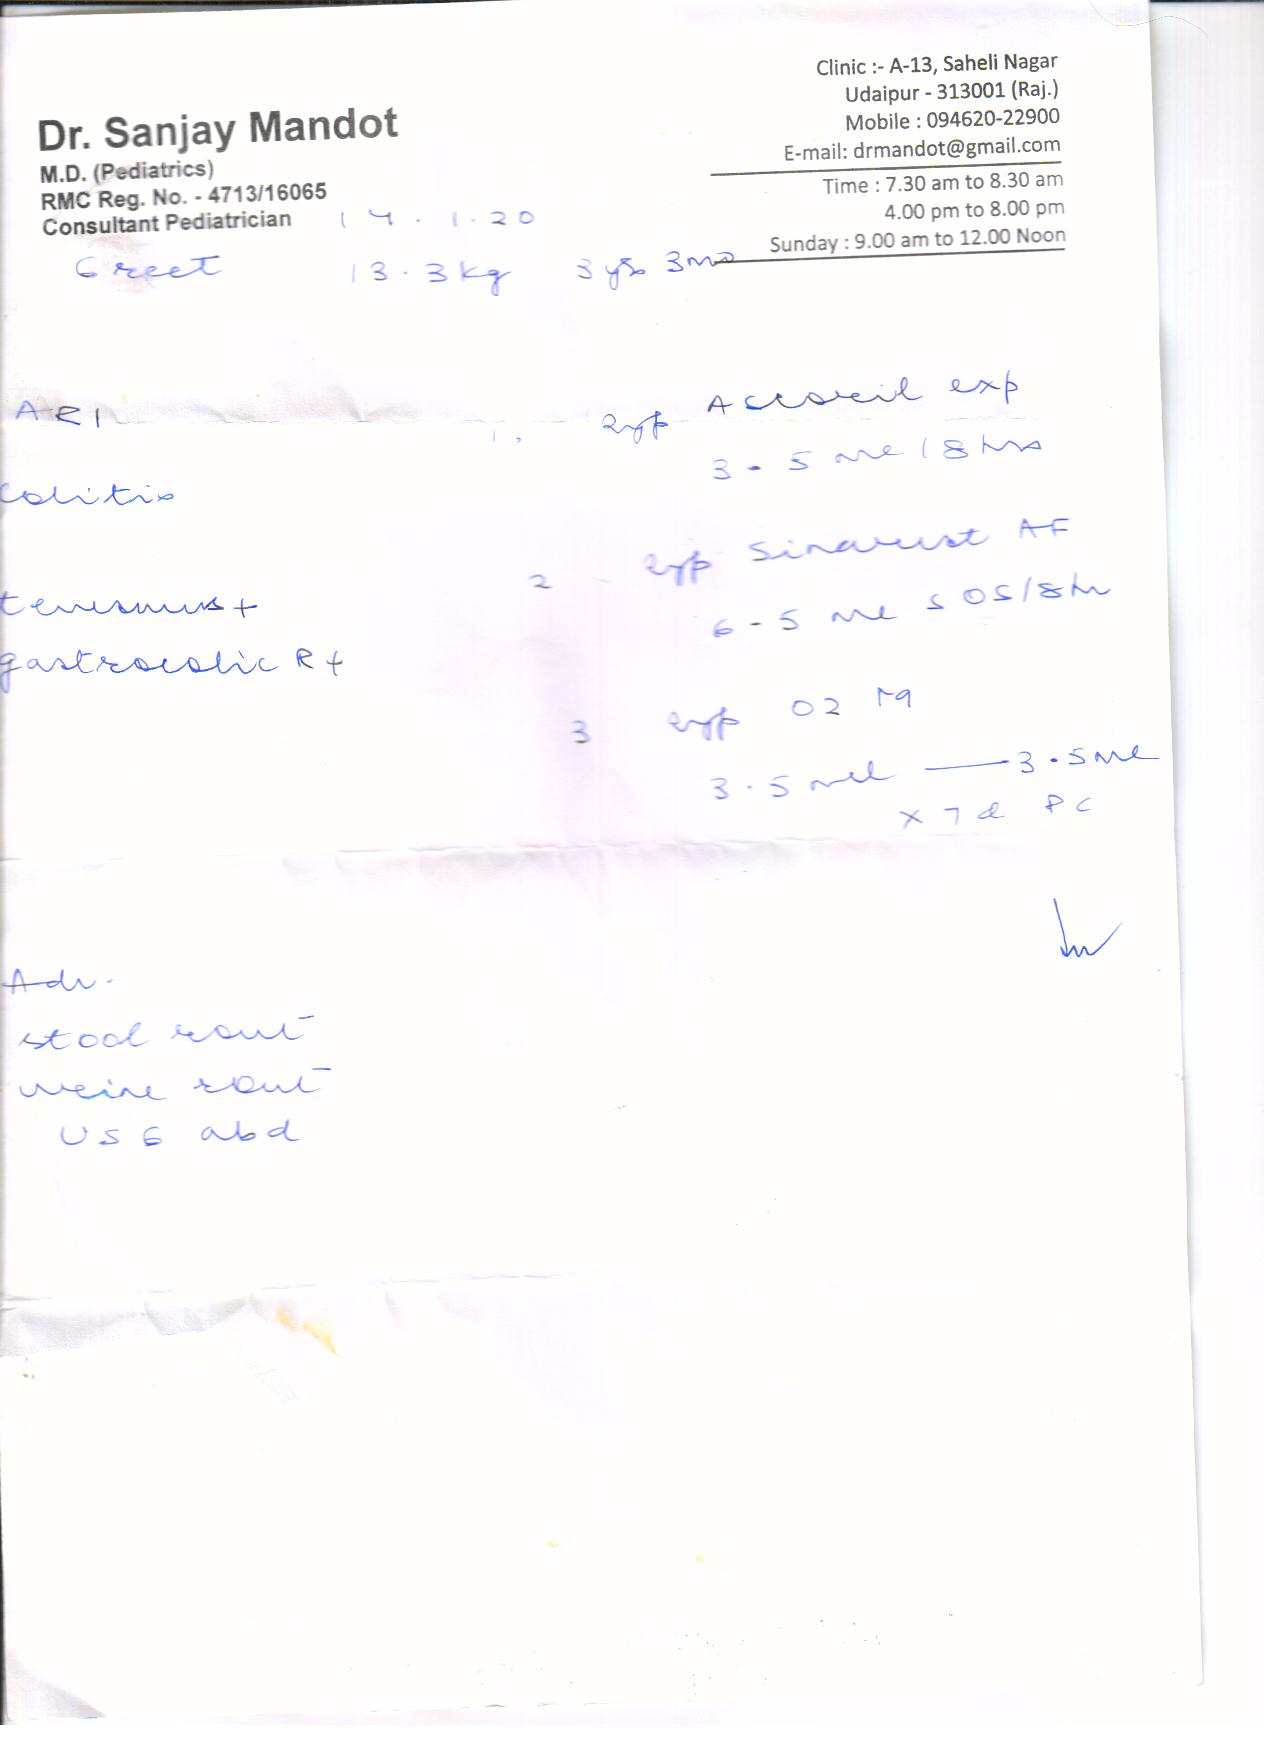 Clinic :- A-13, Saheli Nagar
Udaipur - 313001 (Raj.)
Mobile : 094620-22900
E-mail: drmandot@gmail.com
Time : 7.30 am to 8.30 am
4.00 pm to 8.00 pm
Sunday : 9.00 am to 12.00 Noon
Dr. Sanjay Mandot
M.D. (Pediatrics)
RMC Reg. No. - 4713/16065
Consultant Pediatrician
14.1.20
13.3kg 3 yrs 3mo
ARI
colitis
tenesmus+
gastrocolic R+
1. syp exp
3-5 ml / 8 hrs
2 syp Sinarest AF
6-5 ml SOS/8hr
3 syp
3.5 ml —— 3.5ml
x 7 d PC
Adv.
stool rout
urine rout
USG abd